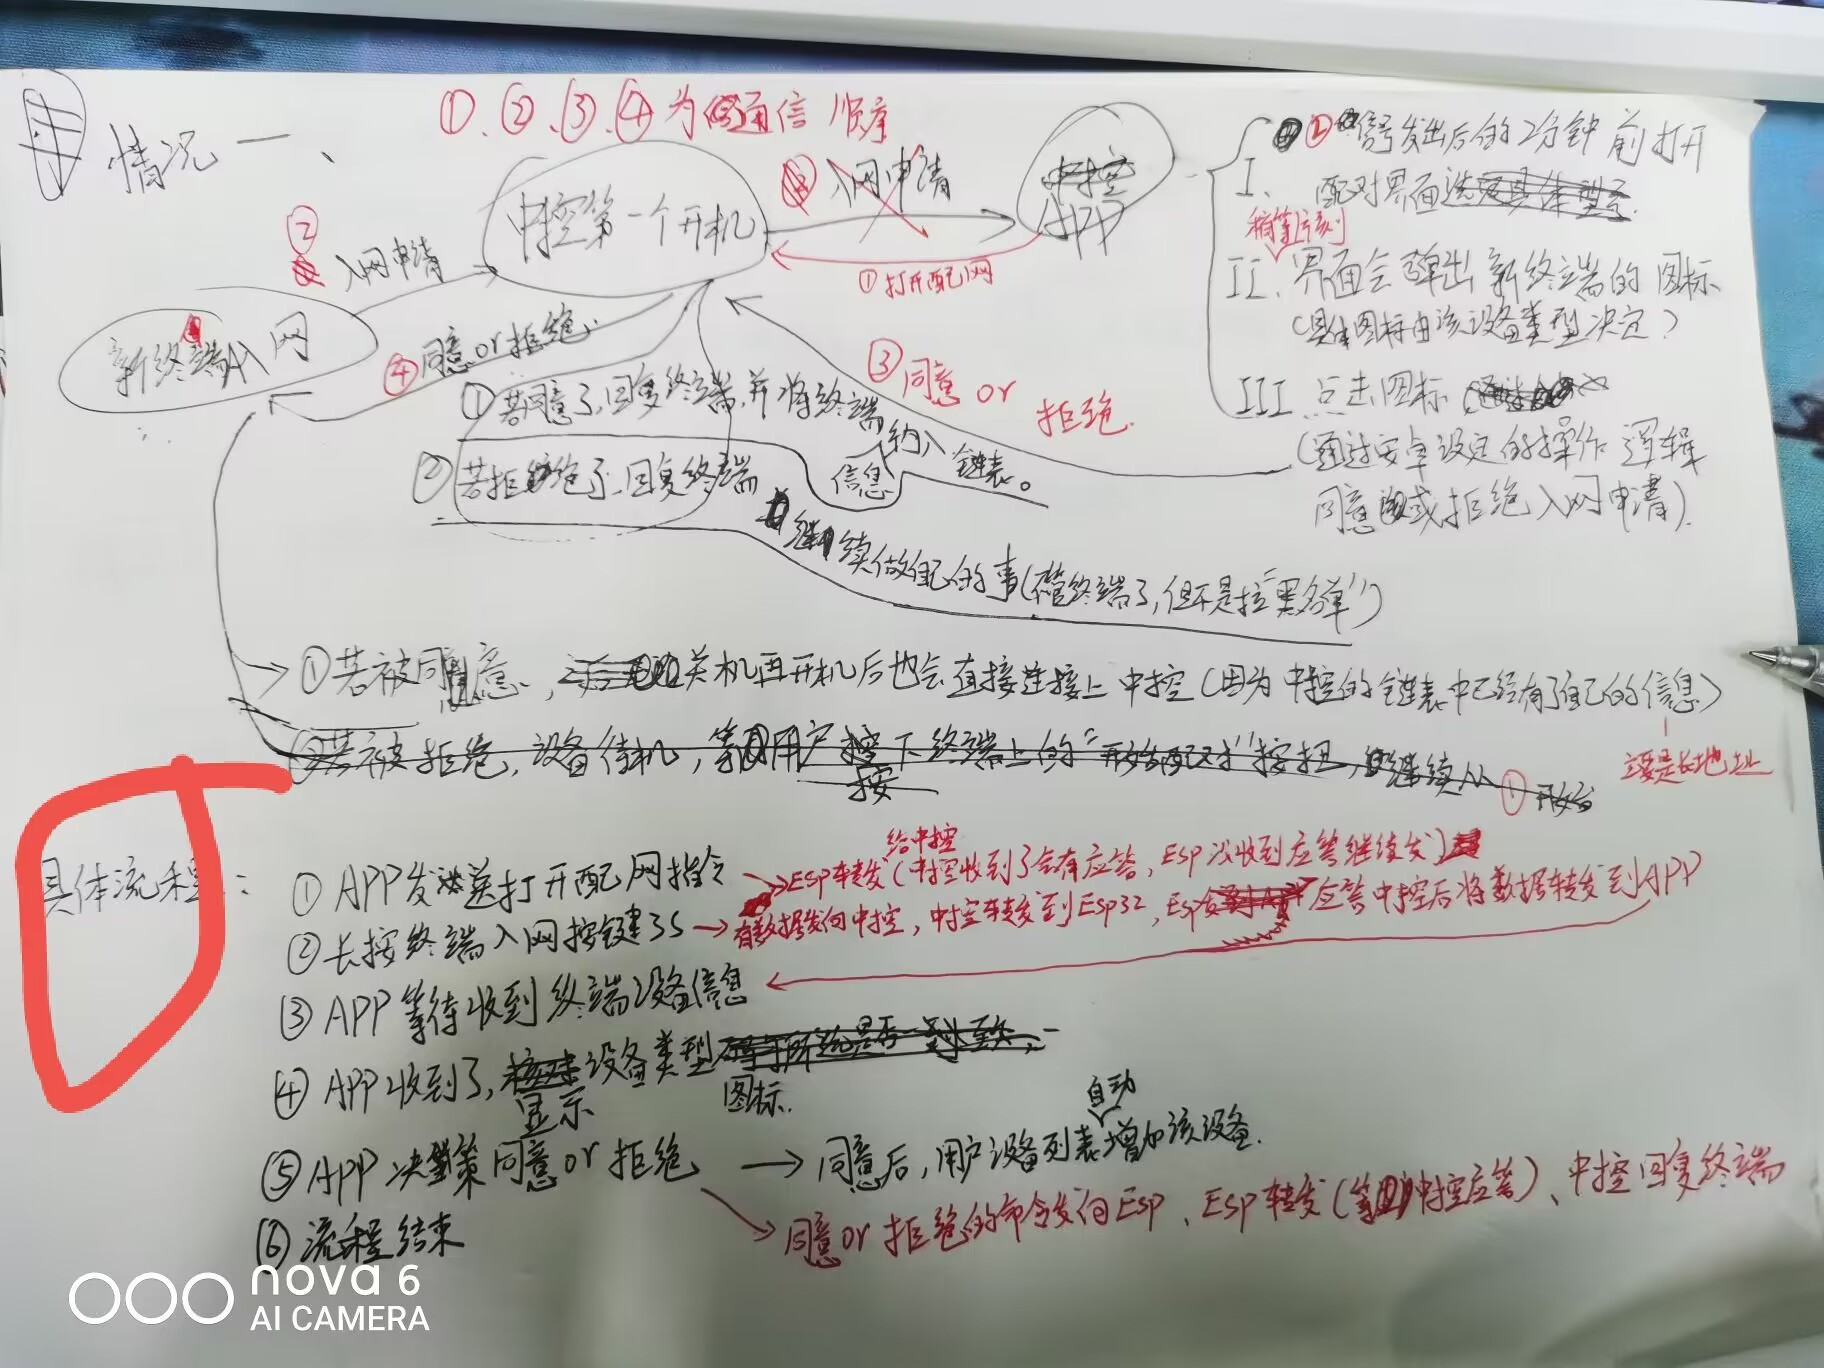 情况一、
①、②、③、④为通信顺序
中控第一个开机
入网申请
中控
APP
①打开配网
②
入网申请
新终端入网
④同意or拒绝
③同意or
拒绝
①若同意了,回复终端,并将终端
信息
纳入
链表。
②若拒绝了,回复终端
继续做自己的事(不管终端了,但不是拉"黑名单")
I、
②信号发出后的2分钟前打开
配对界面
稍等片刻
II、界面会弹出新终端的图标
(具体图标由该设备类型决定)
III 点击图标
(通过安卓设定的操作逻辑
同意或拒绝入网申请).
①若被同意,关机再开机后也会直接连接上中控(因为中控的链表中已经有了自己的信息)
主要是长地址
②若被拒绝,设备待机,等用户按下终端上的"开始配对"按钮,继续从①开始
按
具体流程:
给中控
①APP发送打开配网指令
ESP转发(中控收到了会有应答,ESP没收到应答继续发)
②长按终端入网按键3S→有数据发向中控,中控转发到Esp32,Esp应答中控后将数据转发到APP
③APP等待收到终端设备信息
④APP收到了,设备类型
显示
图标.
自动
⑤APP决策同意or拒绝→同意后,用户设备列表增加该设备.
同意or拒绝的命令发向Esp、ESP转发(等到中控应答)、中控回复终端
⑥流程结束
nova 6
AI CAMERA